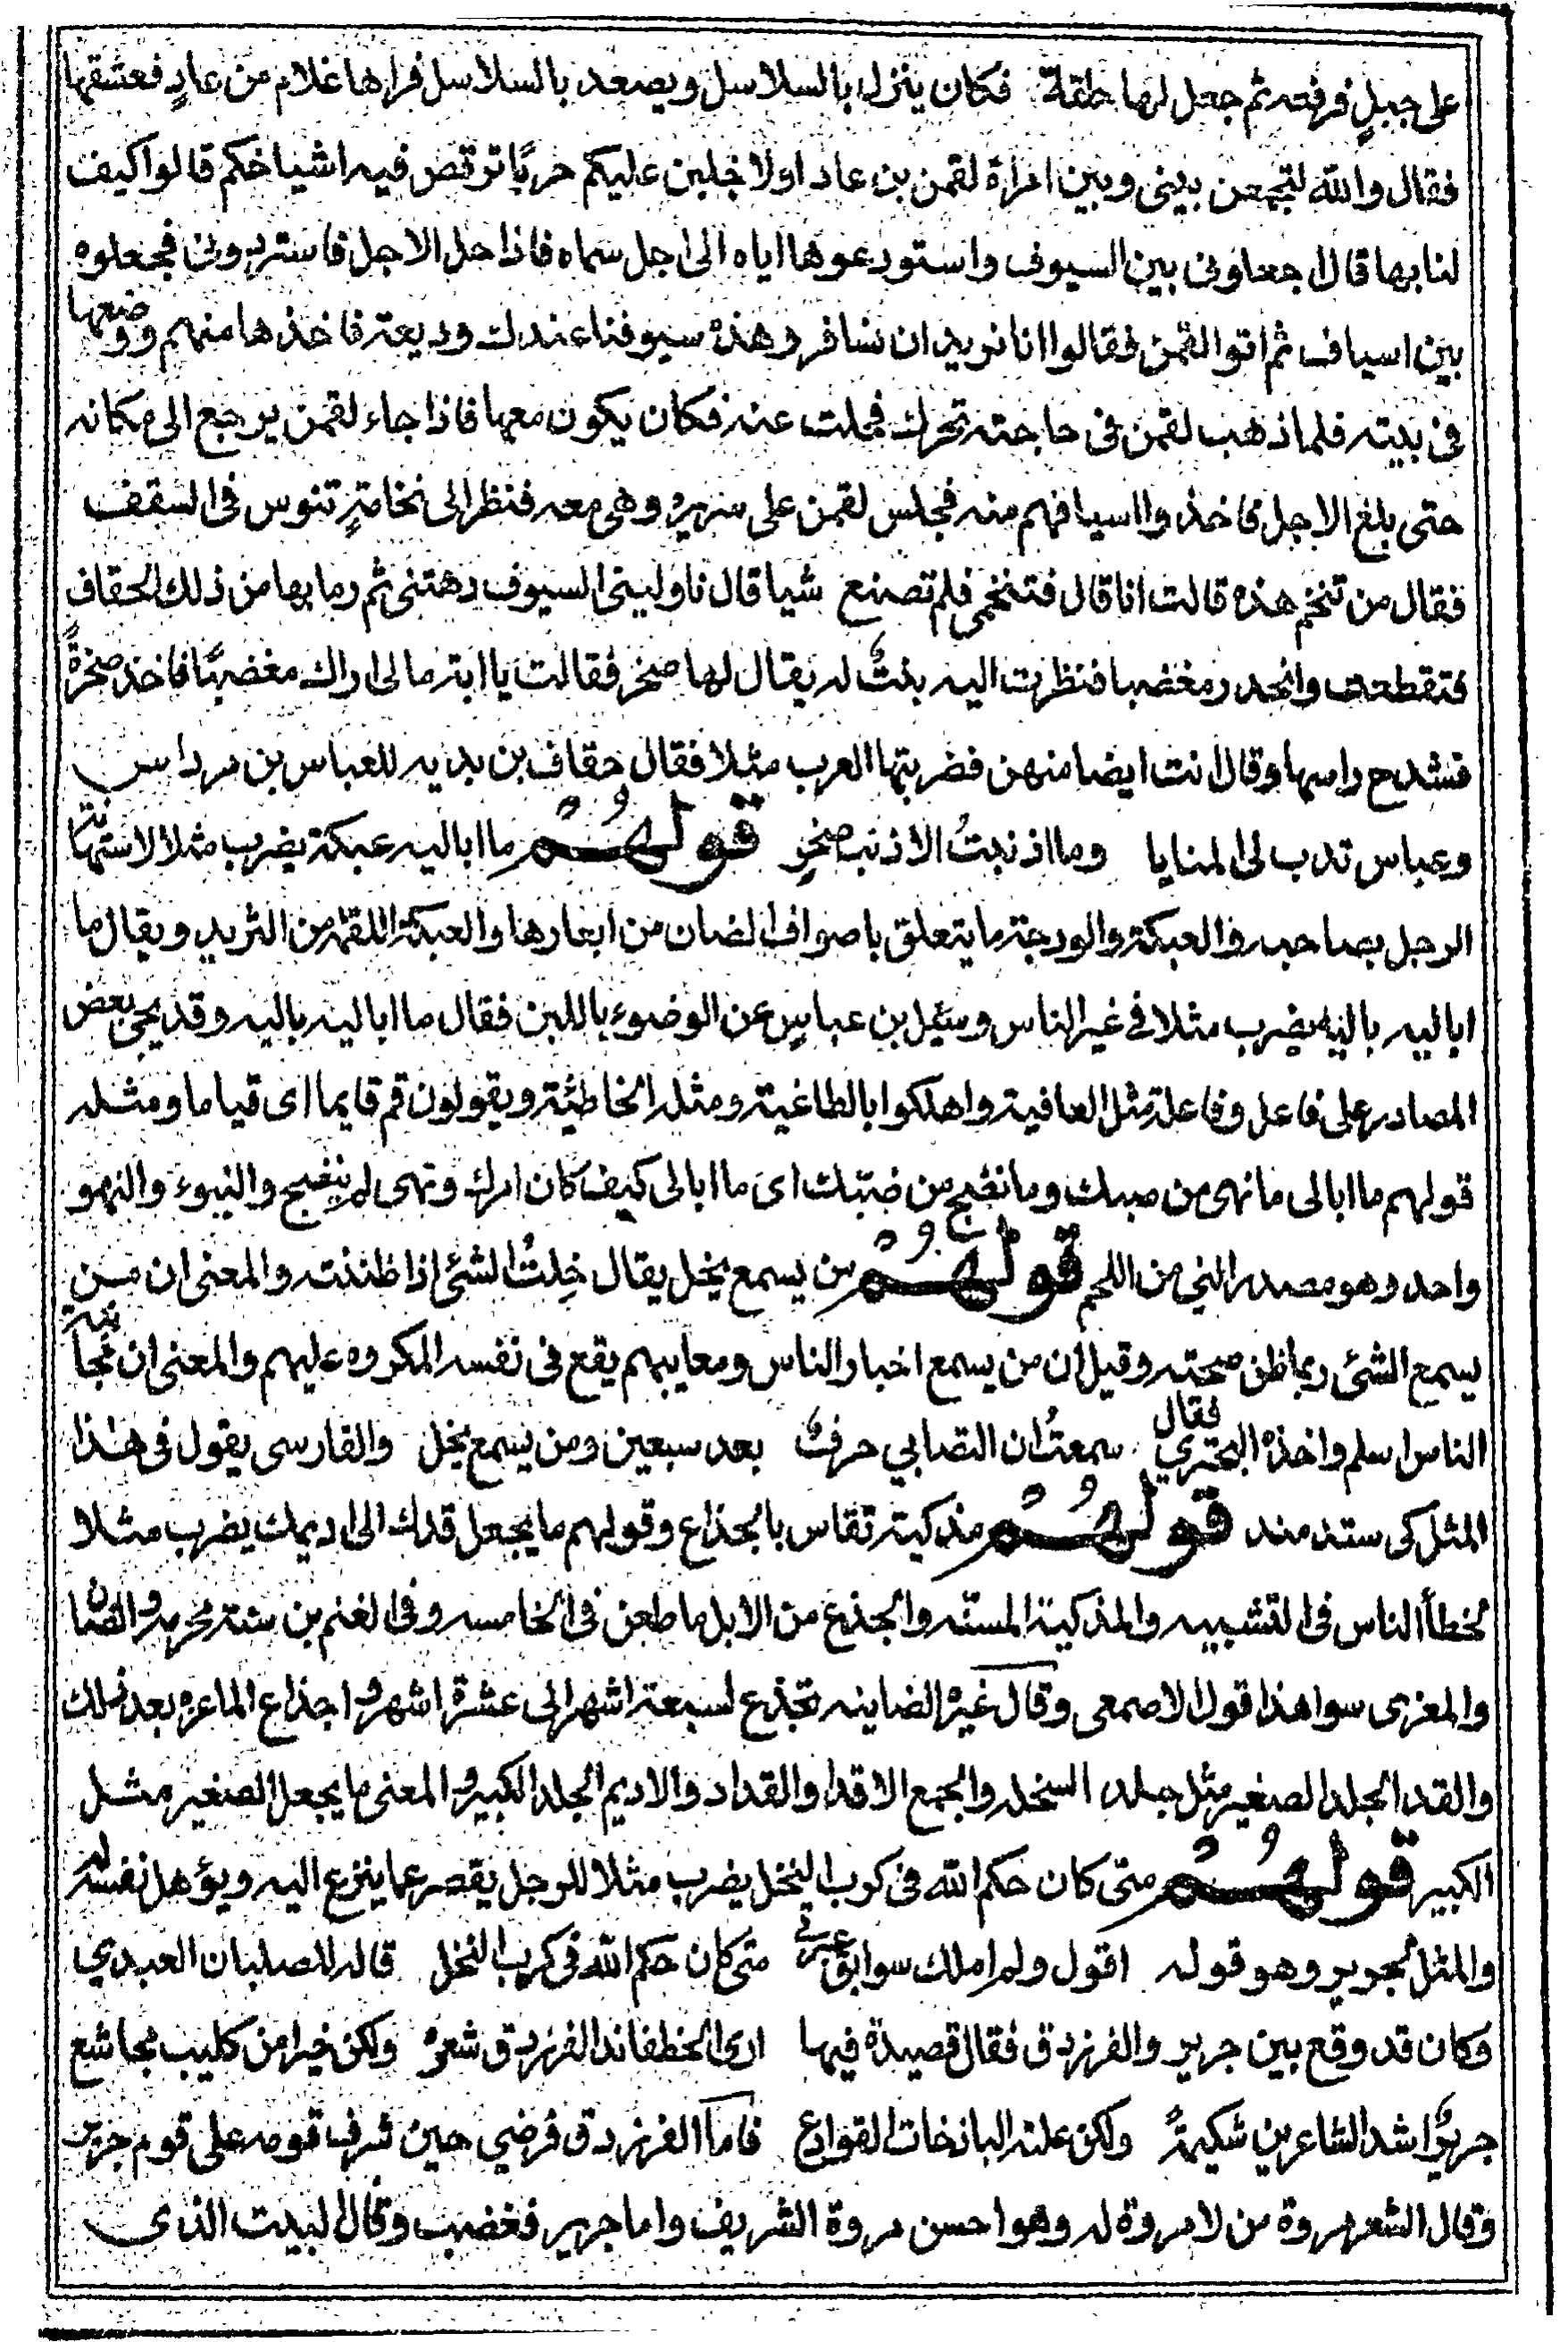 على جبلٍ فرفعه ثم جعل لها حلقة فكان ينزل بالسلاسل ويصعد بالسلاسل فراها غلام من عادٍ فعشقها
فقال والله لتجمعن بيني وبين امراة لقمن بن عاد اولا جلبن عليكم حربًا ترقص فيه اشياخكم قالوا كيف
لنا بها قال اجعلونى بين السيوف واستودعوها اياه الى اجل سماه فاذا حل الاجل فاستردونى فجعلوه
بين اسياف ثم اتوا لقمن فقالوا انا نريد ان نسافر وهذه سيوفنا عندك وديعة فاخذها منهم ووضعها
فى بيته فلما ذهب لقمن فى حاجته تحرك فحلت عنه فكان يكون معها فاذا جاء لقمن يرجع الى مكانه
حتى بلغ الاجل فاخذوا اسيافهم منه فجلس لقمن على سريره وهى معه فنظر الى نخامةٍ تنوس فى السقف
فقال من تنخم هذه قالت انا قال فتنخمى فلم تصنع شيا قال ناولينى السيوف دهتنى ثم رما بها من ذلك الحقاف
فتقطعت وانحدر مغضبا فنظرت اليه بنتٌ له يقال لها صخر فقالت يا ابة ما لى اراك مغضبًا فاخذ صخرةً
فشدح راسها وقال انت ايضا منهن فضربتها العرب مثلا فقال حقاف بن بديه للعباس بن مرداس
وعباس تدب لى المنايا وما اذنبتُ الا ذنب صخرٍ قولهُم ما اباليه عبكة يضرب مثلا لاستهانة
الرجل بصاحبه والعبكة والودجة ما يتعلق باصواف الضان من ابعارها والعبكة اللقمة من الثريد ويقال ما
اباليه بالية يضرب مثلا فى غير الناس وسئل بن عباسٍ عن الوضوء باللبن فقال ما اباليه باليه وقد يجى بعض
المصادر على فاعل وفاعلة مثل العافية واهلكوا بالطاغية ومثله الخاطئة ويقولون قم قايما اى قياما ومثله
قولهم ما ابالى ما نهى من ضبك وما نضج من ضبّك اى ما ابالى كيف كان امرك ونهى لم ينضج والنيوء والنهو
واحد وهو مصدر الني من اللحم قولهُم من يسمع يخل يقال خِلتُ الشئ اذا ظننته والمعنى ان من
يسمع الشئ ربما ظن صحته وقيل ان من يسمع اخبار الناس ومعايبهم يقع فى نفسه المكروه عليهم والمعنى ان مجانبة
الناس اسلم واخذه البحتري فقال سمعتُ ان التصابي حرفٌ بعد سبعين ومن يسمع يخل والفارسى يقول فى هذا
المثل كى ستد مند قولهُم مذكية تقاس بالجذاع وقولهم ما يجعل قدك الى اديمك يضرب مثلا
لخطأ الناس فى التشبيه والمذكية المسنّه والجذع من الابل ما طعن فى الخامسه وفى الغنم بن سنة محرمه والضان
والمعزى سوا هذا قول الاصمعى وقال غيره الضاينه تجذع لسبعة اشهر الى عشرة اشهر واجذاع الماعزه بعد ذلك
والقد الجلد الصغير مثل جلد السخله والجمع الاقد والقداد والاديم الجلد الكبير والمعنى ما يجعل الصغير مثل
الكبير قولهُم متى كان حكم الله فى كرب النخل يضرب مثلا للرجل يقصر عما ينزع اليه ويؤهل نفسه له
والمثل لجرير وهو قوله اقول ولم املك سوابق عبرتي متى كان حكم الله فى كرب النخل قاله للصلتان العبدي
وكان قد وقع بين جرير والفرزدق فقال قصيدة فيها ارى الخطفا بذ الفرزدق شعرهُ ولكن خيرا من كليب مجاشع
جريرٌ اشد الشاعرين شكيمةً ولكن علته الباذخات القوارع فاما الفرزدق فرضي حين شرف قومه على قوم جرير
وقال الشعر مروة من لا مروة له وهو احسن مروة الشريف واما جرير فغضب وقال لبيت الذى